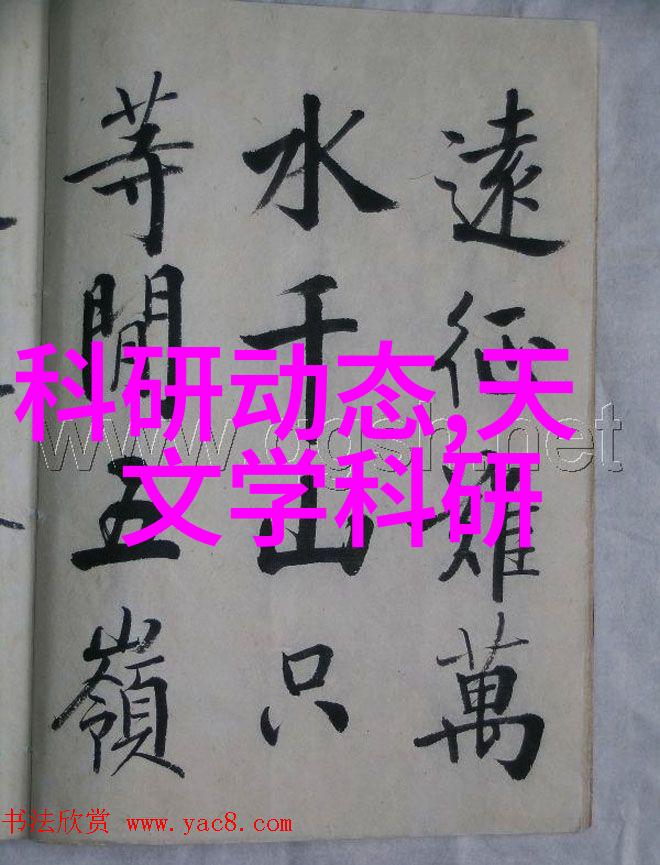 遠征難萬
水千山只
等閒五嶺
科研动态,天
文学科研
www.cgsh.net
书法欣赏 www.yac8.com